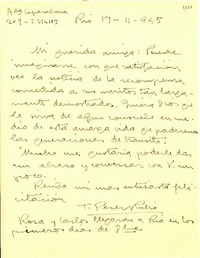 Av Copacabana
1209 - T. 274117
Rio 17-11-945
Mi querida amiga: Puede
imaginarse con qué satisfacción
veo la noticia de la recompensa
concedida a sus méritos tan larga-
mente demostrados. Quiera Dios que
le sirva de algún consuelo en me-
dio de esta amarga vida que padecemos
las generaciones de tránsito.
Mucho me gustaría poderle dar
un abrazo y conversar con V. un
poco.
Reciba mi mas entusiasta feli-
citación
T. Perez Rubio
Rosa y Carlos llegaran a Rio en los
primeros días de